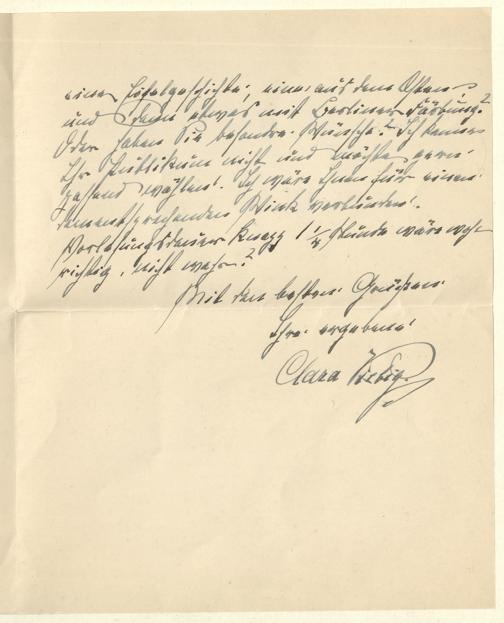 einer Eifelgeschichte, eine aus dem Osten,
und dann etwas mit Berliner Färbung?
Oder haben Sie besondre Wünsche? Ich kenne
Ihr Publikum nicht und möchte gern
passend wählen. Ich wäre Ihnen für einen
dementsprechenden Wink verbunden.
Vorlesungsdauer knapp 1 1/4 Stunde wäre wohl
richtig, nicht wahr?
Mit den besten Grüßen
Ihre ergebene
Clara Viebig.